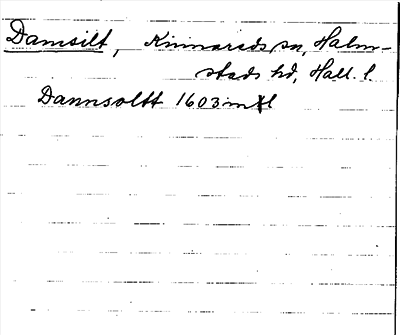 Damsilt, Kinnareds sn, Halm-
stads hd, Hall. l.
Dannsoltt 1603 mtl